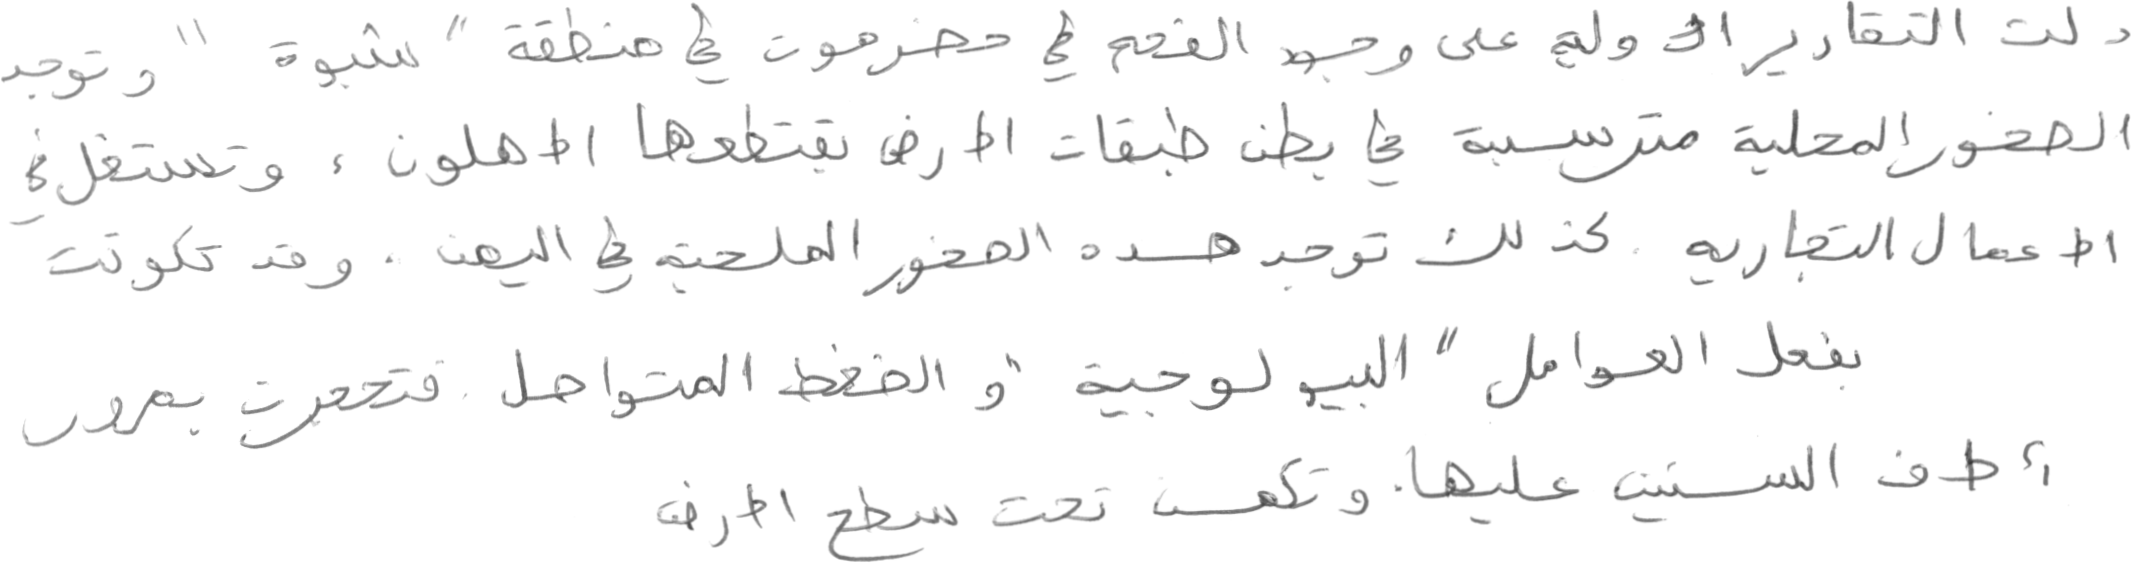 دلت التقارير الاولية على وجود الفحم في حضرموت في منطقة "شبوة" وتوجد
الصخور المحلية مترسبة في بطن طبقات الارض يقتطعها الاهلون ، وتستغل في
الاعمال التجارية . كذلك توجد هده الصخور الملحية في اليمن . وقد تكونت
بفعل العوامل "البيولوجية" و الضغط المتواصل . فتحجرت بمرور
ألاف السنين عليها . وتكمن تحت سطح الارض